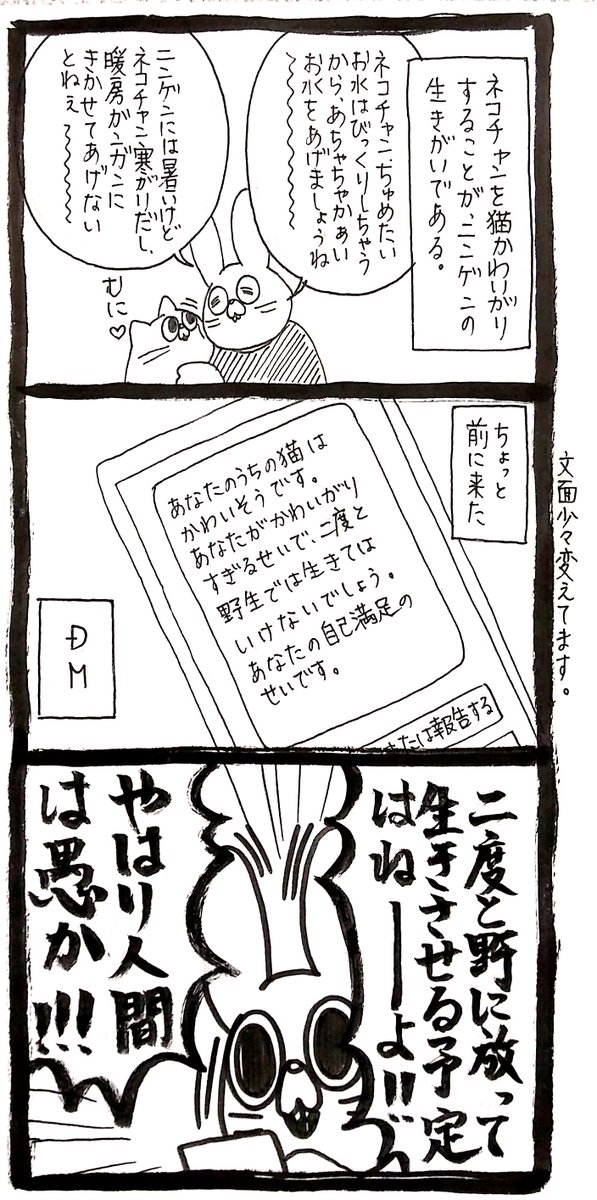 ネコチャンを猫かわいがり
することが、ニンゲンの
生きがいである。
ネコチャンちゅめたい
お水はびっくりしちゃう
から、あちゃちゃかぁい
お水をあげましょうね
〜〜〜〜〜
ニンゲンには暑いけど
ネコチャン寒がりだし、
暖房ガンガンに
きかせてあげない
とねぇ〜〜〜〜
むに♡
ちょっと
前に来た
あなたのうちの猫は
かわいそうです。
あなたがかわいがり
すぎるせいで、二度と
野生では生きては
いけないでしょう。
あなたの自己満足の
せいです。
または報告する
DM
文面少々変えてます。
二度と野に放って
生きさせる予定
はねーーよ!!
やはり人間
は愚か!!!